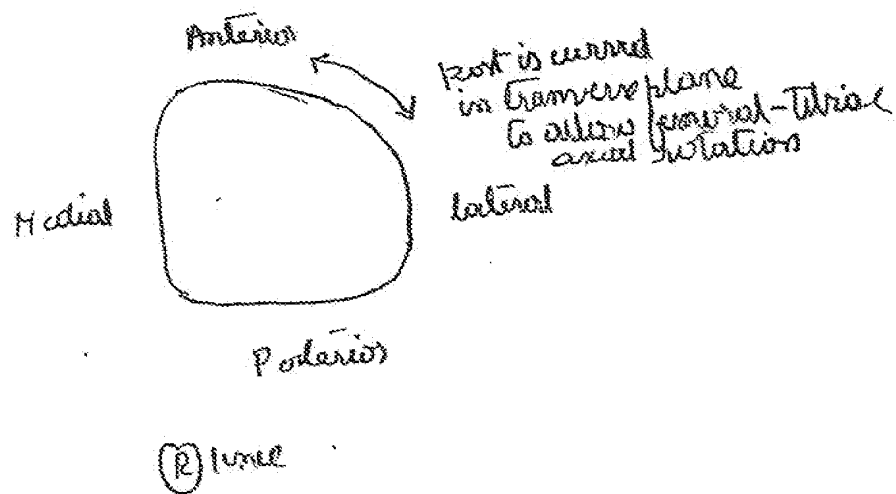 Anterior
Post is curved
in transverse plane
to allow femoral-Tibial
axial rotation
Medial
lateral
Posterior
(R) knee